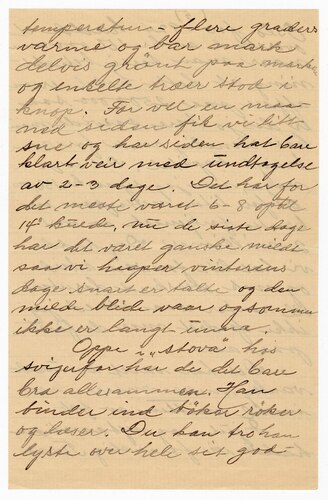 temperatur - flere graders
varme og bar mark
delvis grönt paa marken
og enkelte træer stod i
knop. For vel en maa-
ned siden fik vi litt
sne og har siden hat bare
klart veir med undtagelse
av 2-3 dage. Det har for
det meste været 6-8 optil
14° kulde, nu de siste dage
har det været ganske mildt
saa vi haaper vinterens
dage snart er talte og den
milde blide vaar og sommer
ikke er langt unna.
Oppe i "stova" hos
svigerfar har de det bare
bra allesammen. Han
binder ind bøker røker
og læser. Du kan tro han
lyste over hele sit god-